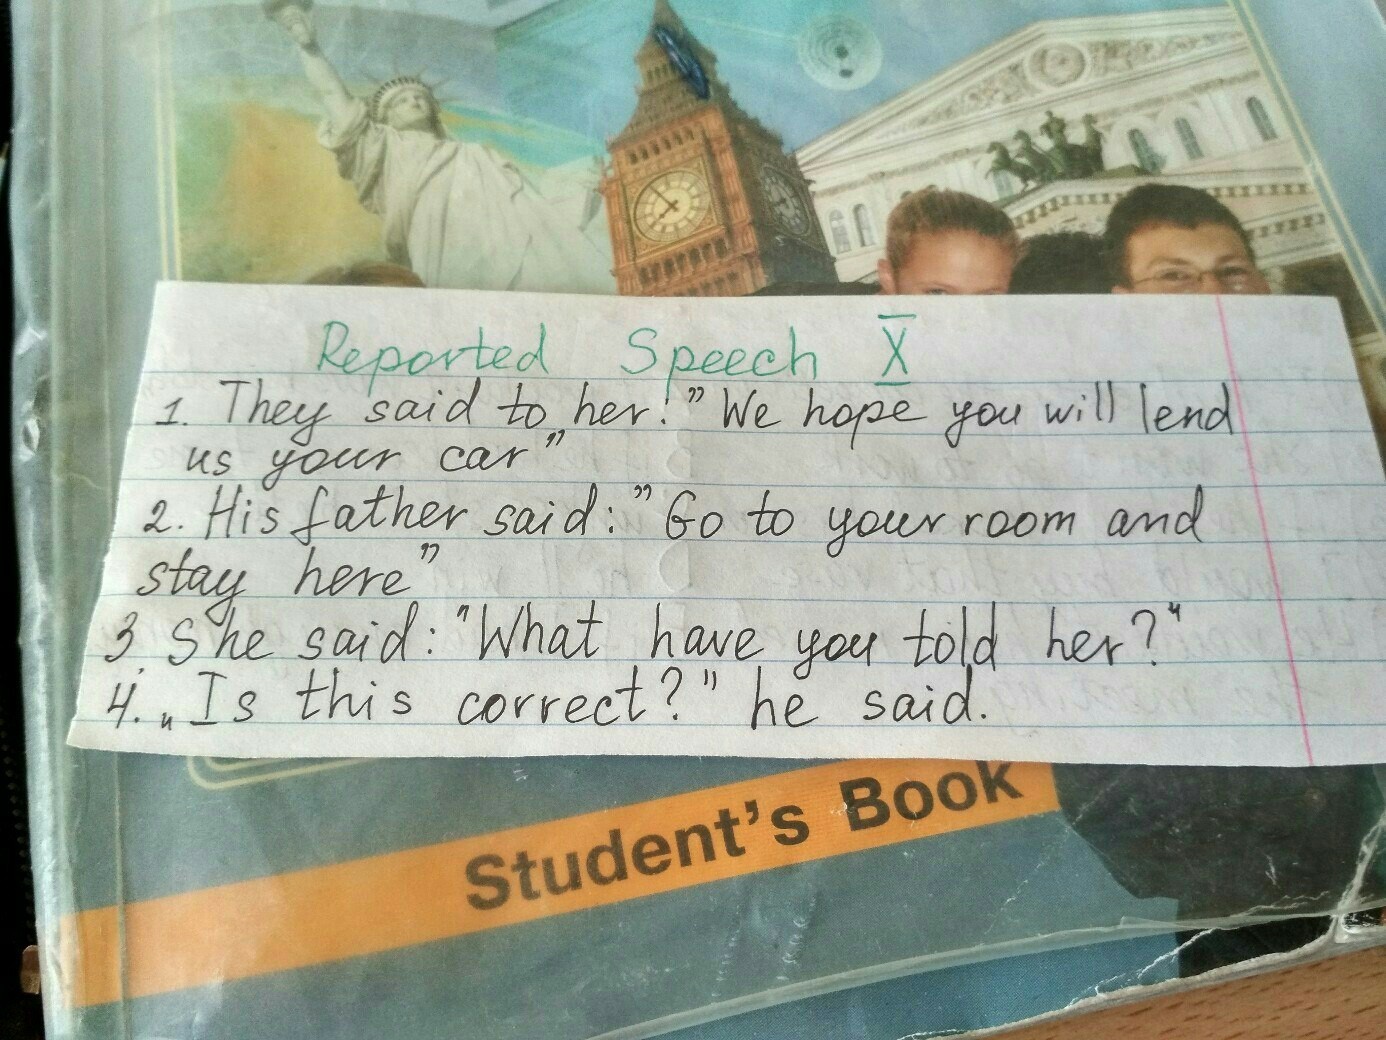 Reported Speech X
1. They said to her: ”We hope you will lend
us your car”
2. His father said: ”Go to your room and
stay here”
3. She said: "What have you told her?"
4. „Is this correct?" he said.
Student's Book